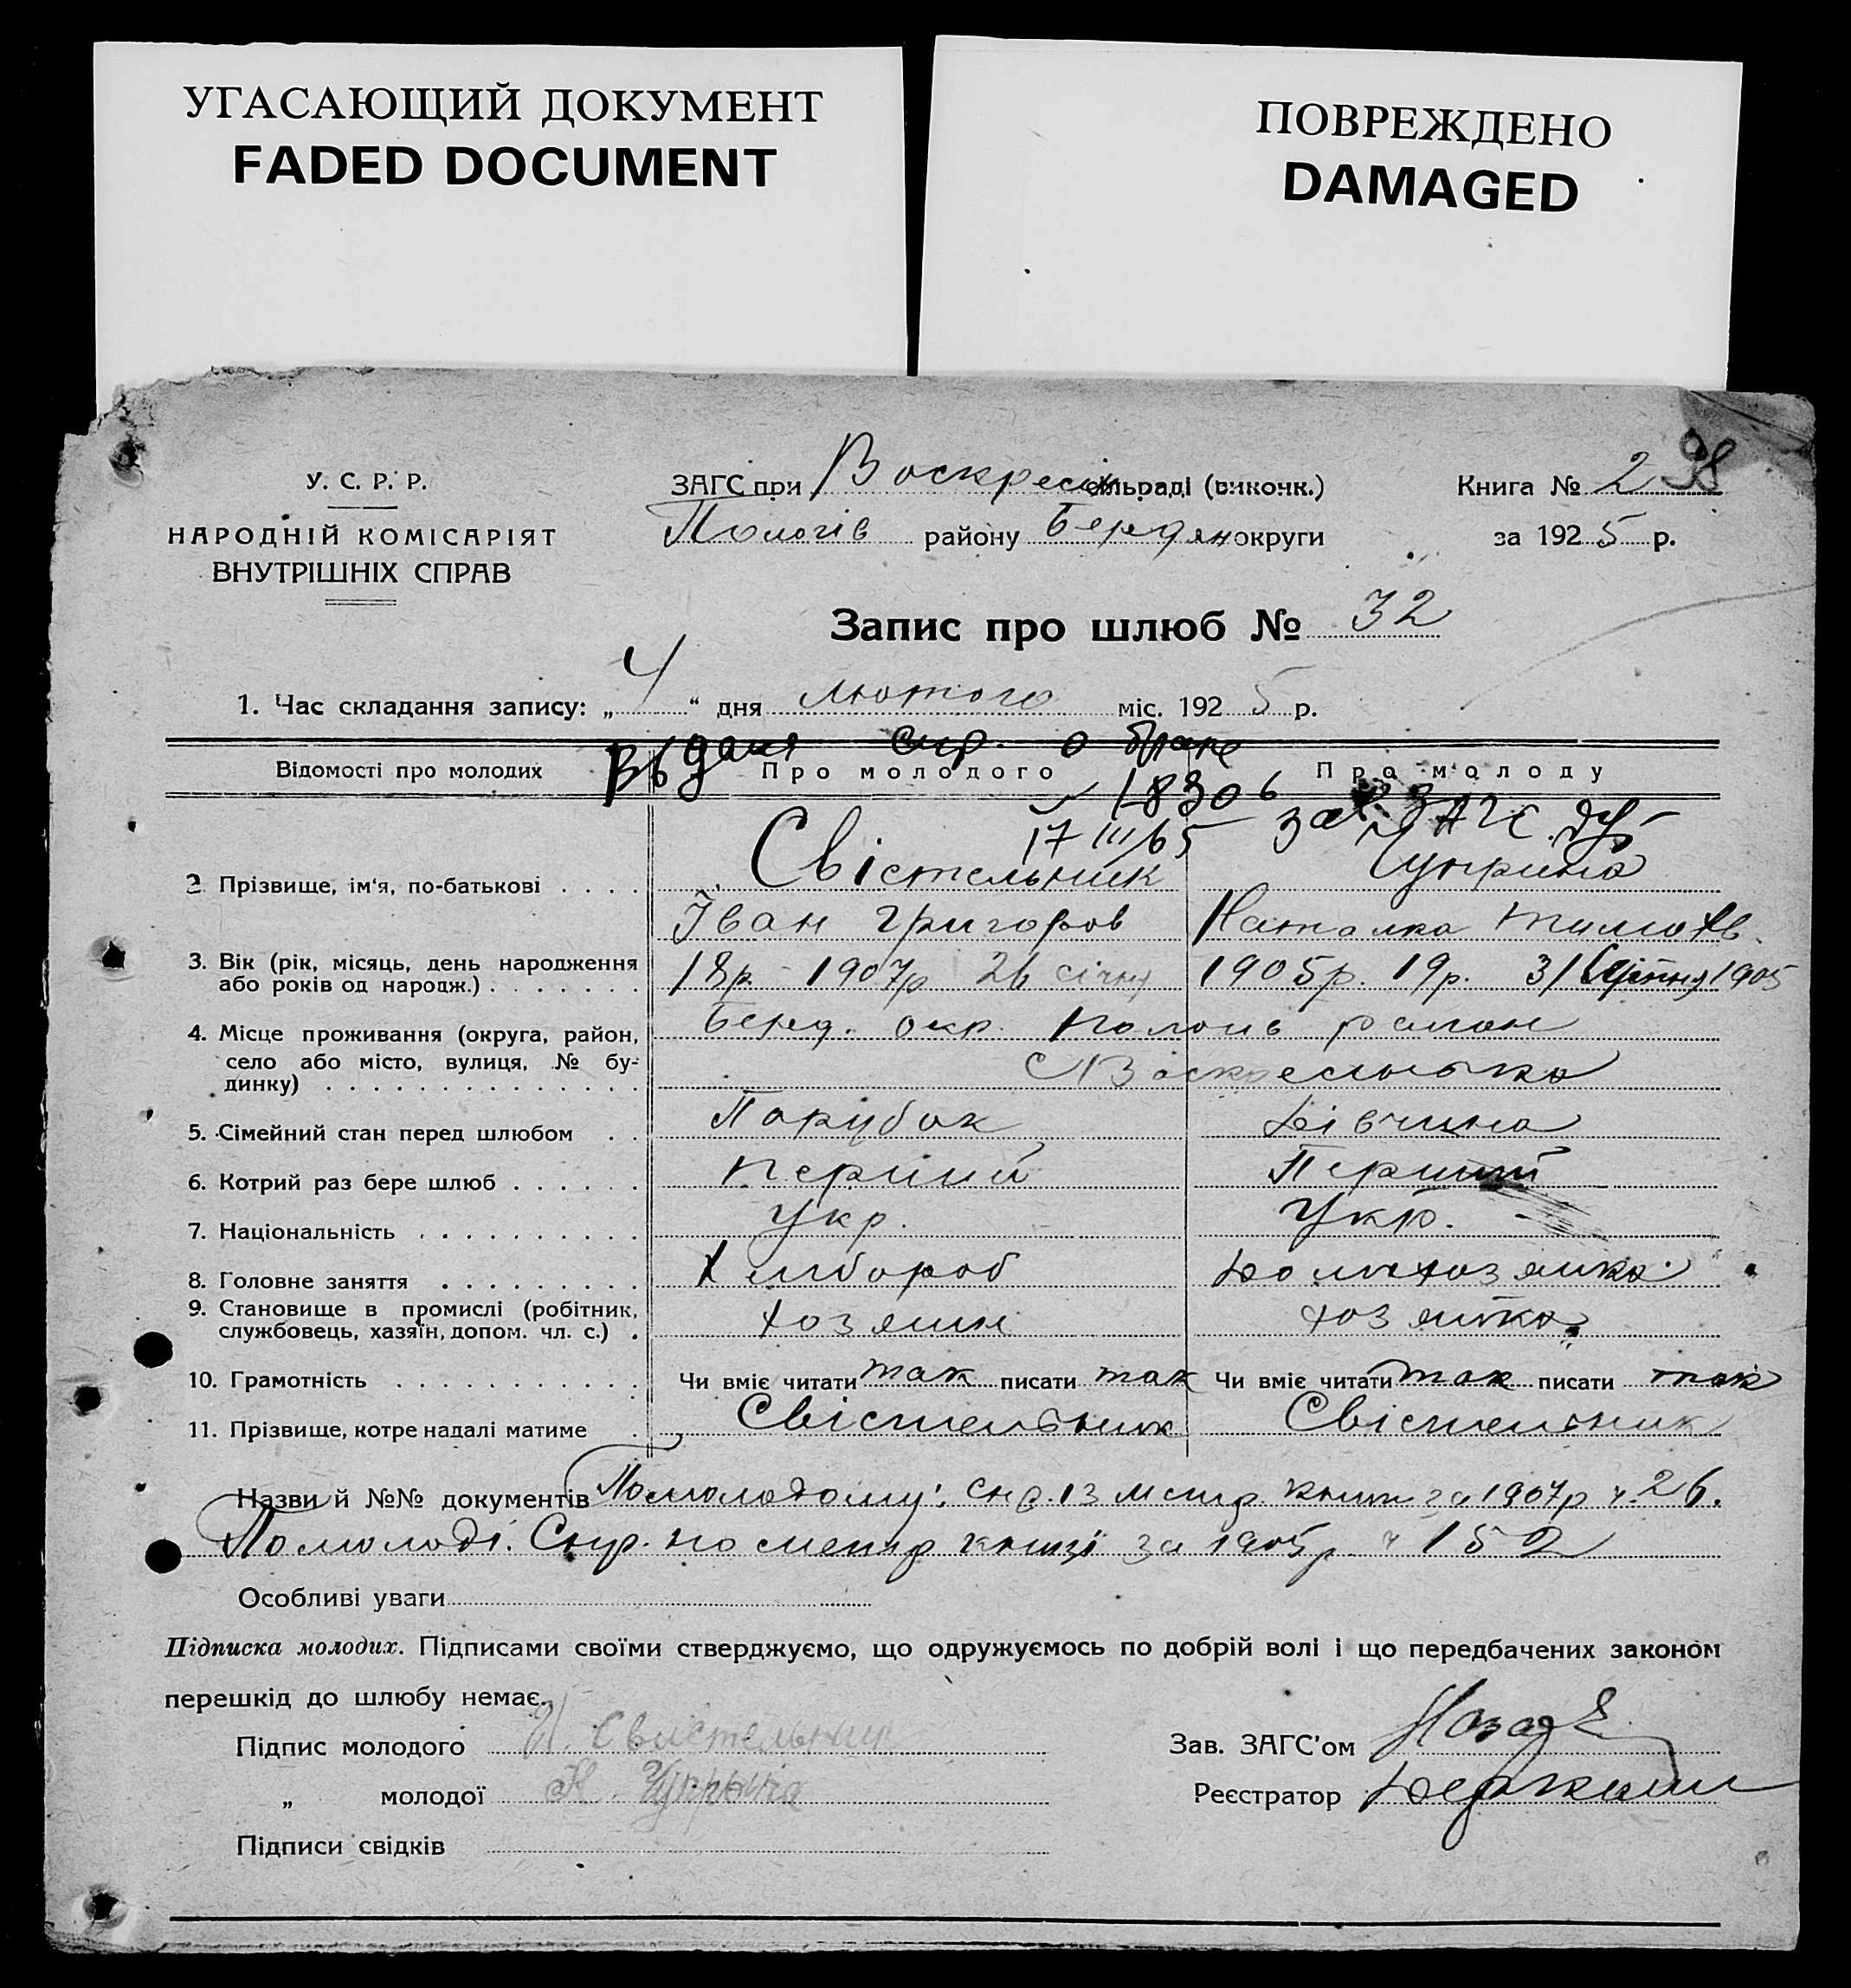 УГАСАЮЩИЙ ДОКУМЕНТ
FADED DOCUMENT
ПОВРЕЖДЕНО
DAMAGED
У. С. Р. Р.
НАРОДНІЙ КОМІСАРІЯТ
ВНУТРІШНІХ СПРАВ
ЗАГС при Воскресін сільраді (виконк.)
Пологів району Бердян округи
Книга № 2 98
за 1925 р.
Запис про шлюб № 32
1. Час складання запису: „4“ дня лютого міс. 1925 р.
Выдана спр. о браке
Відомості про молодих Про молодого Про молоду
18306
17 III/65 зав ЗАГС
2 Прізвище, ім'я, по-батькові . . . . Свістельник Чуприна
Іван Григоров Наталка Тимофів.
3. Вік (рік, місяць, день народження
або років од нарoдж.) . . . . . . . 18р. 1907р 26 січня 1905р. 19р. 31 Серпня 1905
4. Місце проживання (округа, район, Беред. окр. Пологів район
село або місто, вулиця, № бу-
динку) . . . . . . . . . . . . . . с Воскресенка
5. Сімейний стан перед шлюбом . . Парубок Дівчина
6. Котрий раз бере шлюб . . . . . . Перший Перший
7. Національність . . . . . . . . . . Укр. Укр.
8. Головне заняття . . . . . . . . . Хлібороб Домохозяйка
9. Становище в промислі (робітник,
службовець, хазяїн, допом. чл. с.) . хозяин хозяйка
10. Грамотність . . . . . . . . . . . Чи вміє читати так писати так Чи вміє читати так писати так
11. Прізвище, котре надалі матиме . Свістельник Свістельник
Назви й №№ документів Помолодому: із метр. книги за 1907р ч. 26.
Помолоді. Спр. по метр книзі за 1905р ч 152
Особливі уваги
Підписка молодих. Підписами своїми стверджуємо, що одружуємось по добрій волі і що передбачених законом
перешкід до шлюбу немає.
Підпис молодого И. Свистельник
Зав. ЗАГС'ом
„ молодої Н. Чупрына
Реєстратор
Підписи свідків